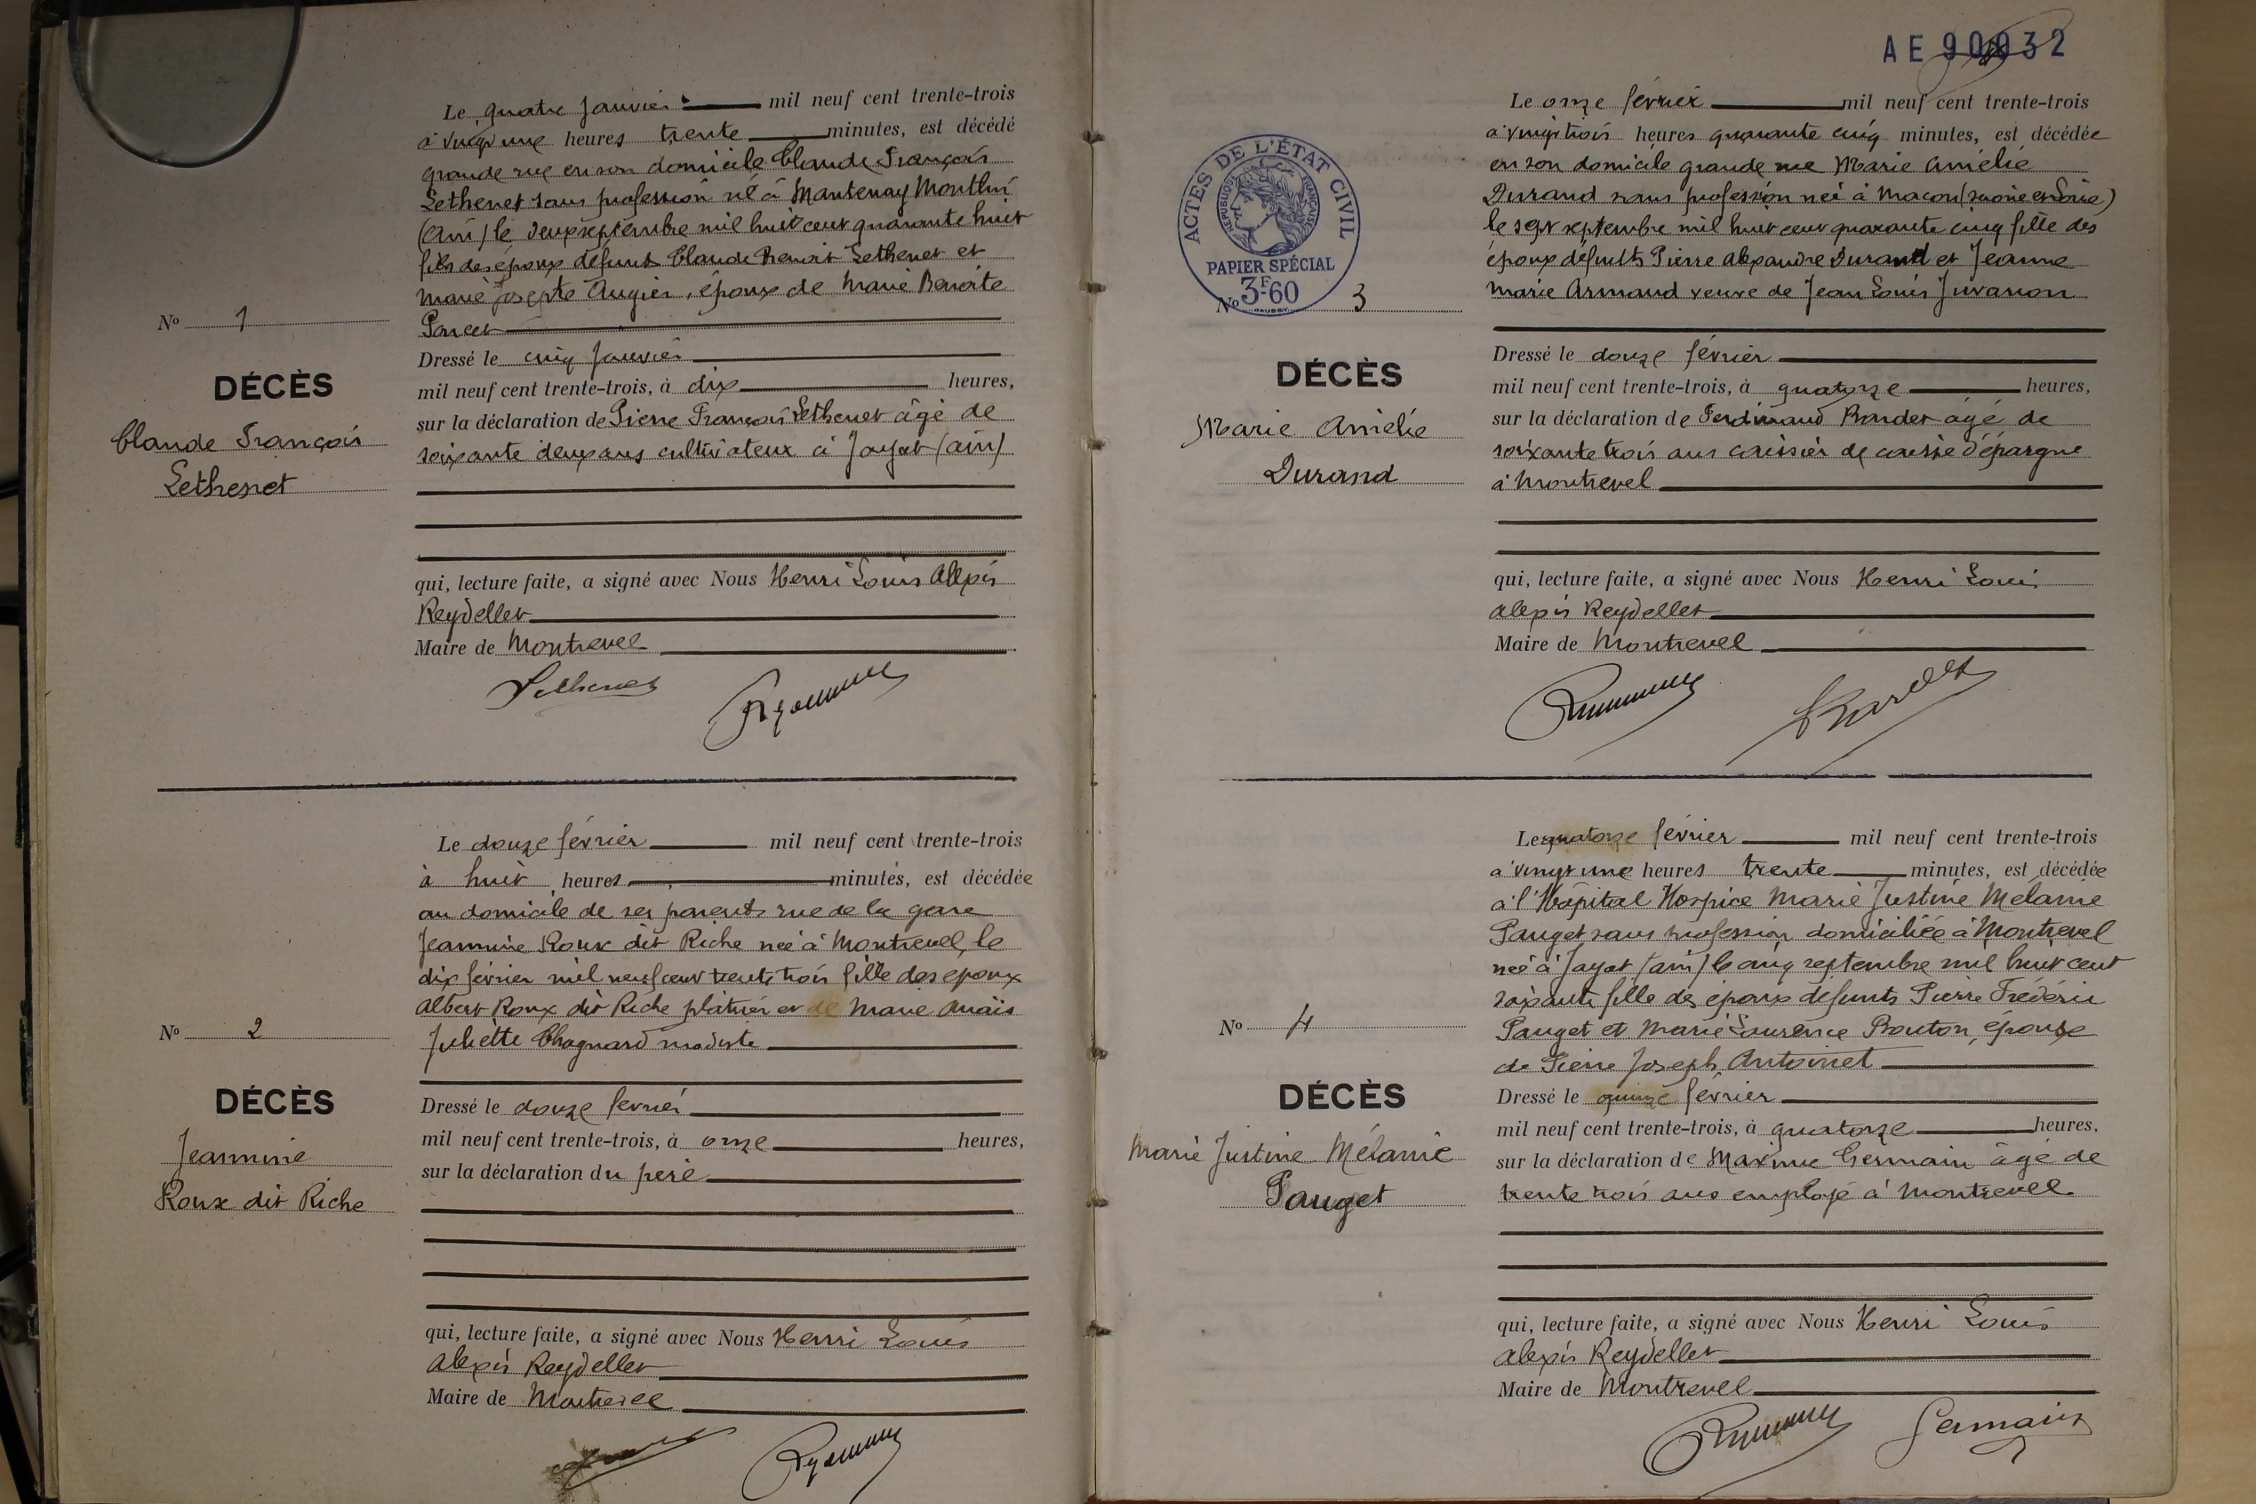 Le quatre janvier mil neuf cent trente-trois
à vingt une heures trente minutes, est décédé
grande rue en son domicile Claude François
Lethenet sans profession né à Mantenay Montlin
(Ain) le deux septembre mil huit cent quarante huit
fils des époux défunts Claude Benoit Lethenet et
Marie Josepte Augier, époux de Marie Benoite
Poncet
Nº 1
Dressé le cinq janvier
DÉCÈS
mil neuf cent trente-trois, à dix heures,
sur la déclaration de Pierre François Lethenet âgé de
Claude François
soixante deux ans cultivateur à Jayat (ain)
Lethenet
qui, lecture faite, a signé avec Nous Henri Louis Alexis
Reydellet
Maire de Montrevel
Lethenet
Le douze février mil neuf cent trente-trois
à huit heures minutes, est décédée
au domicile de ses parents rue de la gare
Jeannine Roux dit Riche née à Montrevel le
dix février mil neuf cent trente trois fille des époux
Albert Roux dit Riche plâtrier et de Marie Anaïs
Nº 2
Juliette Chagnard modiste
DÉCÈS
Dressé le douze février
mil neuf cent trente-trois, à onze heures,
Jeannine
sur la déclaration du père
Roux dit Riche
qui, lecture faite, a signé avec Nous Henri Louis
Alexis Reydellet
Maire de Montrevel
AE 90032
Le onze février mil neuf cent trente-trois
à vingt trois heures quarante cinq minutes, est décédée
en son domicile grande rue Marie Amélie
Durand sans profession née à Macon (Saône et Loire)
le sept septembre mil huit cent quarante cinq fille des
époux défunts Pierre Alexandre Durand et Jeanne
Marie Armand veuve de Jean Louis Juvanon
ACTES DE L'ÉTAT CIVIL
RÉPUBLIQUE FRANÇAISE
PAPIER SPÉCIAL
3F-60
Nº 3
Dressé le douze février
DÉCÈS
mil neuf cent trente-trois, à quatorze heures,
Marie Amélie
sur la déclaration de Ferdinand Brandet âgé de
Durand
soixante trois ans caissier de caisse d'épargne
à Montrevel
qui, lecture faite, a signé avec Nous Henri Louis
Alexis Reydellet
Maire de Montrevel
Le quatorze février mil neuf cent trente-trois
à vingt une heures trente minutes, est décédée
à l'Hôpital Hospice Marie Justine Mélanie
Pauget sans profession domiciliée à Montrevel
née à Jayat (ain) le cinq septembre mil huit cent
soixante fille des époux défunts Pierre Frédéric
Nº 4
Pauget et Marie Laurence Bouton, épouse
de Pierre Joseph Antoinet
DÉCÈS
Dressé le quinze février
mil neuf cent trente-trois, à quatorze heures,
Marie Justine Mélanie
sur la déclaration de Maxime Germain âgé de
Pauget
trente trois ans employé à Montrevel
qui, lecture faite, a signé avec Nous Henri Louis
Alexis Reydellet
Maire de Montrevel
Germain